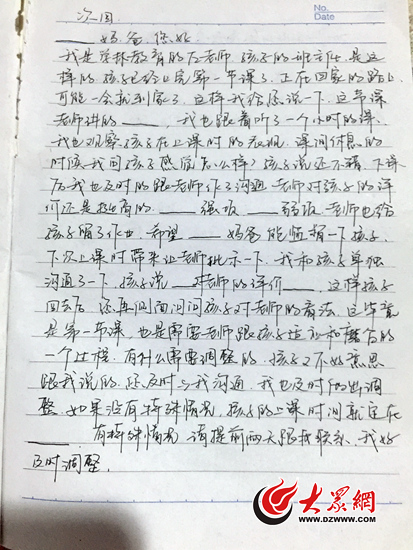 No.
Date
次回
____妈爸,您好
我是学林教育的左老师,孩子的班主任,是这
样的,孩子已经上完第一节课了,正在回家的路上,
可能一会就到家了,这样我给您说一下,这节课
老师讲的____,我也跟着听了一个小时的课,
我也观察孩子在上课时的表现,课间休息的
时候我问孩子感觉怎么样,孩子说还不错,下课
后我也及时的跟老师作了沟通,老师对孩子的评
价还是挺高的,____强项____弱项,老师也给
孩子留了作业,希望____妈爸能监督一下孩子,
下次上课时带来让老师批示一下,我和孩子单独
沟通了一下,孩子说____对老师的评价____,这样孩子
回去后,您再侧面问问孩子对老师的看法,这毕竟
是第一节课,也是需要老师跟孩子适应和磨合的
一个过程,有什么需要调整的,孩子又不好意思
跟我说的,您及时与我沟通,我也及时的做出调
整,如果没有特殊情况,孩子的上课时间就定在
____,有特殊情况,请提前两天跟我联系,我好
及时调整.
大众網
WWW.DZWWW.COM